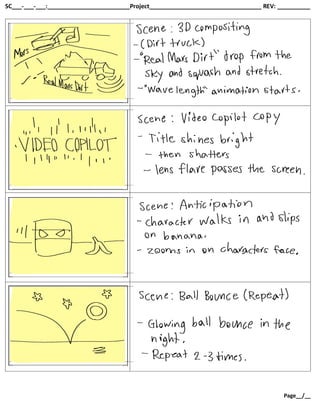 SC___-___-___: Project________________ REV: ________
Mars
Real Mars Dirt
Scene: 3D compositing
- (Dirt truck)
- "Real Mars Dirt" drop from the
sky and squash and stretch.
- "Wave length" animation starts.
VIDEO COPILOT
Scene: Video Copilot copy
- Title shines bright
- then shatters
- lens flare passes the screen.
Scene: Anticipation
- character walks in and slips
on banana.
- zooms in on characters face.
Scene: Ball Bounce (Repeat)
- Glowing ball bounce in the
night.
- Repeat 2-3 times.
Page__/__